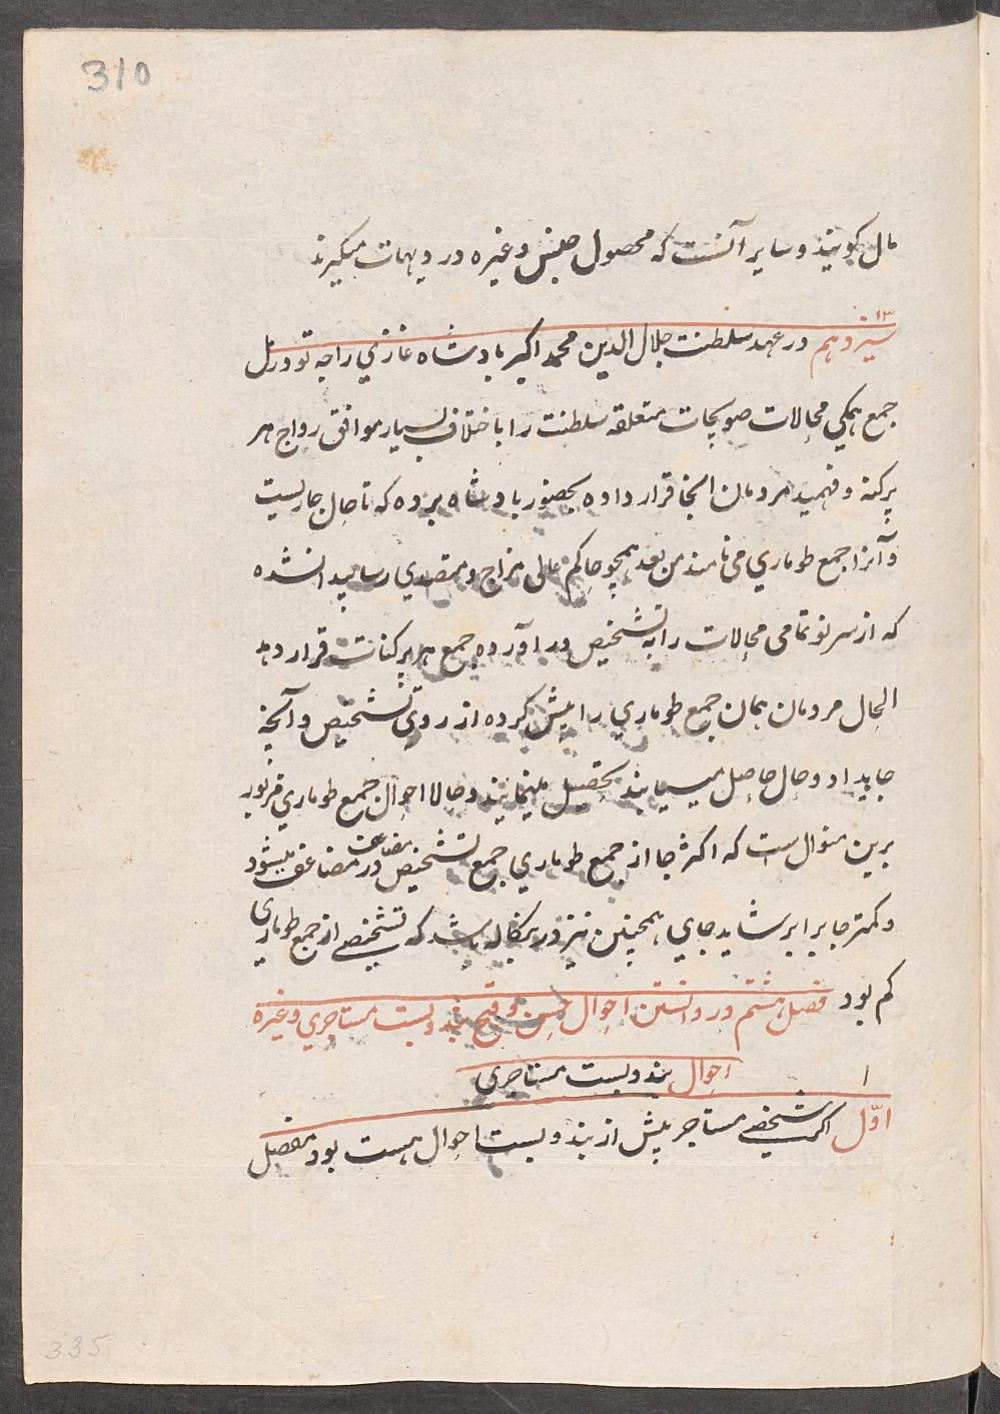 310
مال کویند و سایر آنست که محصول جنس و غیره در دیهات میکیرند
۱۳
سیزدهم در عهد سلطنت جلال الدین محمد اکبر بادشاه غازي راجه تودرمل
جمع همکي محالات صوبجات متعلقه سلطنت را باختلاف بسیار موافق رواج هر
پرکنه و فهمید مردمان انجا قرار داده بحضور بادشاه برده که تا حال جاریست
و آنرا جمع طوماري می نامند من بعد همچو حاکم عالی مزاج و متصدي رسا پیدا نشده
که از سر نو تمامی محالات را به تشخیص در آورده جمع هر پرکنات قرار دهد
الحال مردمان همان جمع طوماري را پیش کرده از روی تشخیص و آنچه
جایداد و حال حاصل میباشد تحصیل مینمایند و حالا احوال جمع طوماري مزبور
برین منوال است که اکثر جا از جمع طوماري جمع تشخیص مضاعف در مضاعف میشود
و کمتر جا برابر شاید جاي همچنین نیز در بنکاله باشد که تشخیص از جمع طوماری
کم بود فصل هشتم در دانستن احوال حسن و قبح بندوبست مستاجري وغیره
احوال بندوبست مستاجری
۱
اوّل اکر شخصے مستاجر پیش از بندوبست احوال هست بود مفصل
335